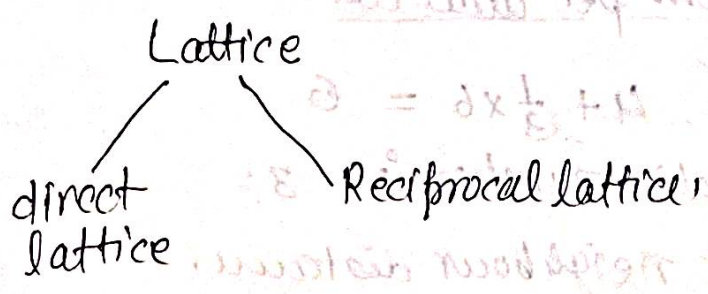 Lattice
direct
lattice
Reciprocal lattice,